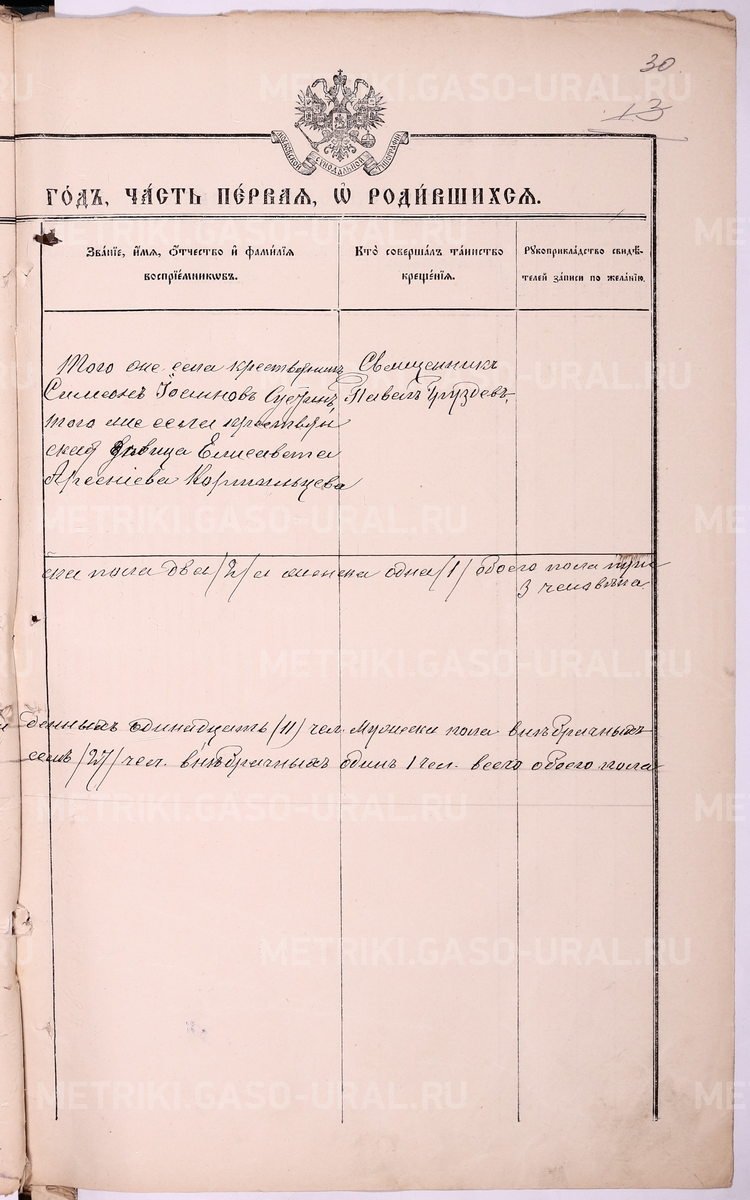 30
13
МОСКОВСКОЙ СѴНОДАЛЬНОЙ ТИПОГРАФІИ
ГО́ДЪ, ЧА́СТЬ ПЕ́РВАЯ, Ѽ РОДИ́ВШИХСЯ.
ЗВА́НІЕ, И́МЯ, О́ТЧЕСТВО И́ ФАМИ́ЛІЯ
ВОСПРІЕ́МНИКОВЪ.
КТО̀ СОВЕРША́ЛЪ ТА́ИНСТВО
КРЕЩЕ́НІЯ.
РУКОПРИКЛА́ДСТВО СВИДѢ́-
ТЕЛЕЙ ЗА́ПИСИ ПО ЖЕЛА́НІЮ.
Того же села крестьянинъ
Симеонъ Іоанновъ
того же села крестьян
ская девица Елисавета
Арсеніева Кормильцева
Священникъ
Павелъ Груздевъ
ска пола два /2/ а женска одна /1/ обоего пола
3 человѣка
денныхъ одинадцать /11/ чел. Мужска пола внѣбрачныхъ
семь /27/ чел. внѣбрачныхъ одинъ 1 чел. всего обоего пола
METRIKI.GASO-URAL.RU